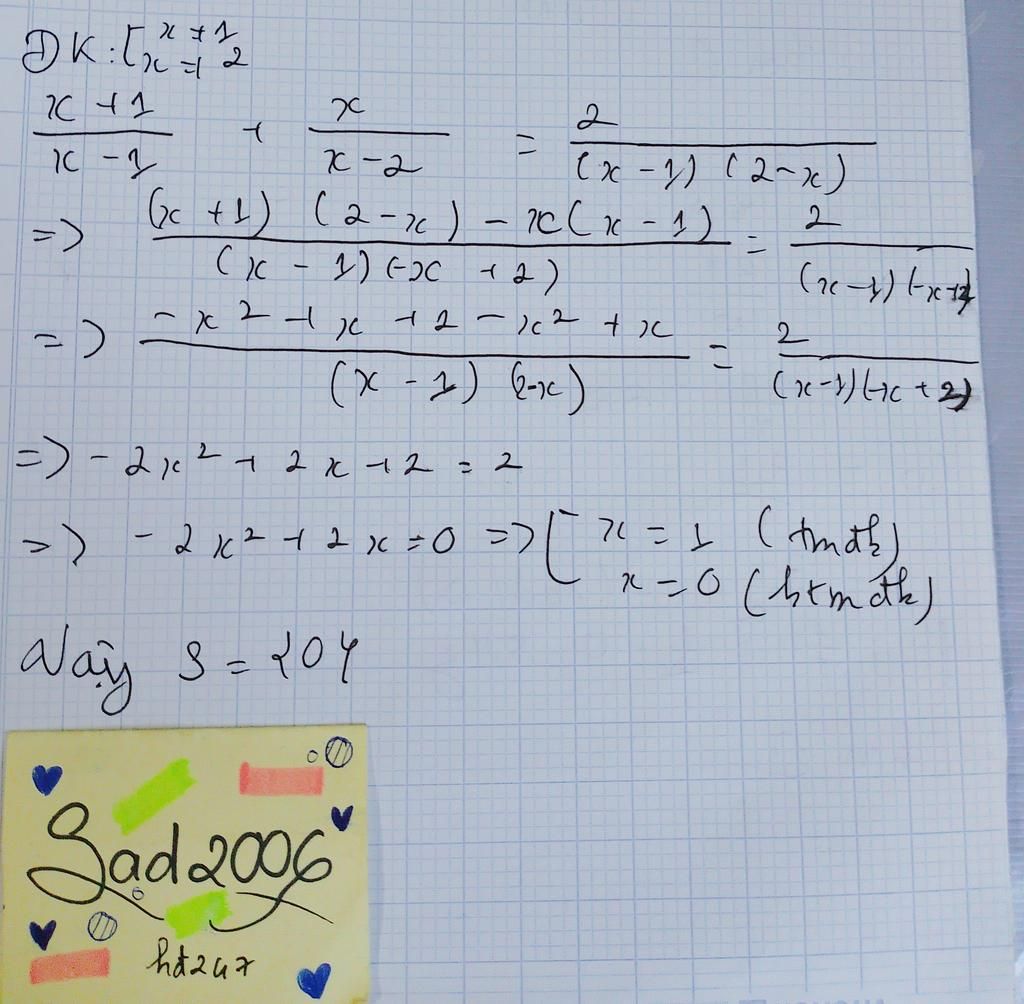 ĐK: [x ≠ 1
x ≠ 2
(x + 1)/(x - 1) + x/(x - 2) = 2/((x - 1)(2 - x))
=> ((x + 1)(2 - x) - x(x - 1))/((x - 1)(-x + 2)) = 2/((x - 1)(-x + 2))
=> (-x² + x + 2 - x² + x)/((x - 1)(2-x)) = 2/((x-1)(-x + 2))
=> -2x² + 2x + 2 = 2
=> -2x² + 2x = 0 => [x = 1 (tmđk)
x = 0 (ktmđk)
Vậy S = {0}
Sad2006
hd247